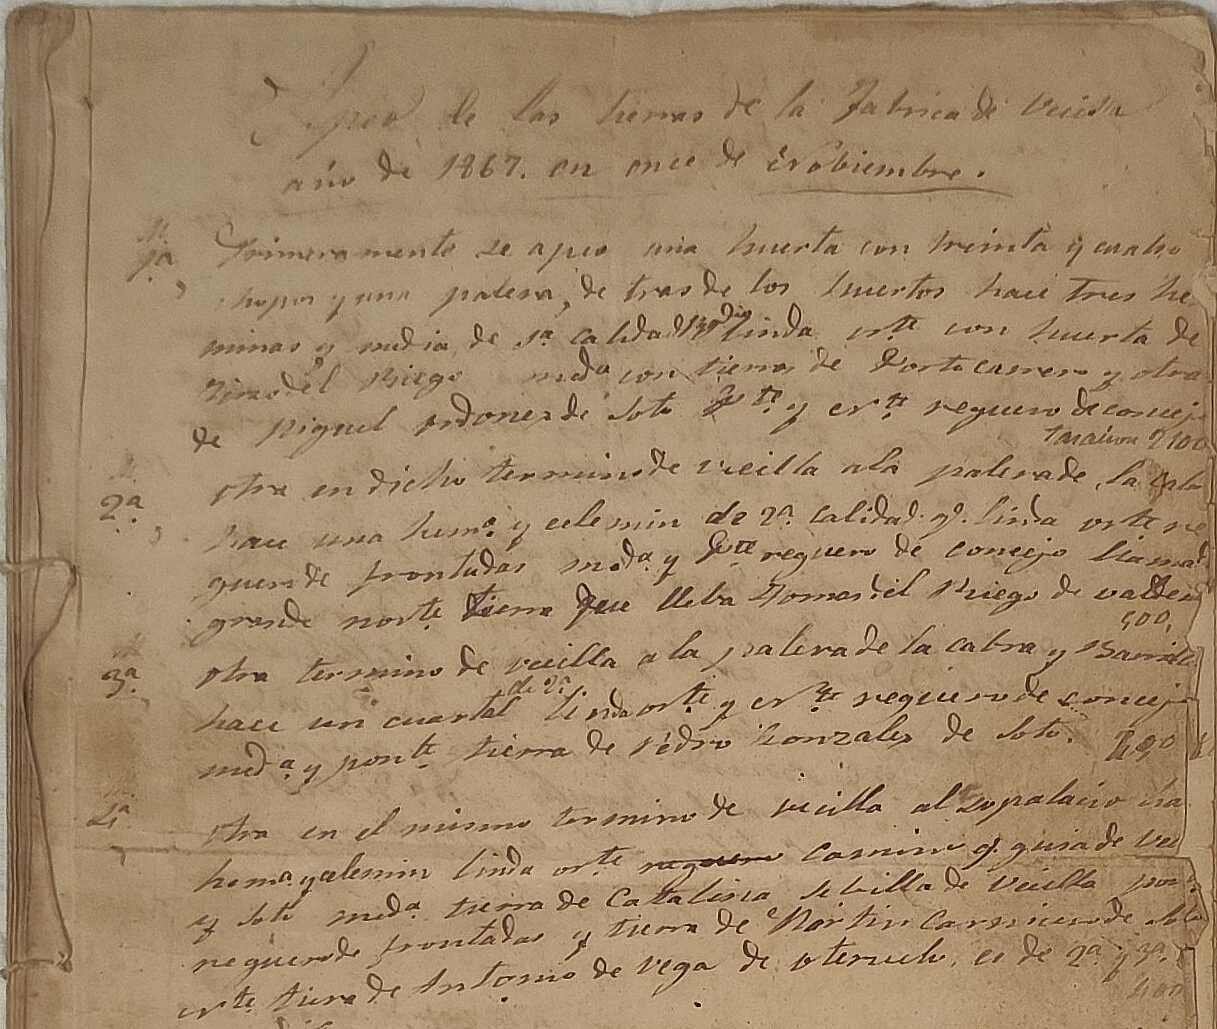 Apeo de las tierras de la Fabrica de Vecilla
año de 1867. en once de Nobiembre.
1ª Primeramente se apeo una huerta con treinta y cuatro
chopos y una palera, de tras de los huertos hace tres he
minas y media de 1ª calidad linda orte con huerta de
del Riego mdª con tierras de Portocarrero y otra
de Miguel ordonez de Soto Pte y nrte reguero de concejo
tasaron 2100
2ª otra en dicho termino de vecilla a la palera de la cabra
hace una hemª y celemin de 2ª calidad qe linda orte re
guero de frontadas medª y Pte reguero de concejo llamado
grande norte tierra que lleba Tomas del Riego de
500,
3ª otra termino de vecilla a la palera de la cabra y
hace un cuartal de 2ª linda orte y nrte reguero de concejo
medª y ponte tierra de Pedro Gonzalez de Soto.
4ª otra en el mismo termino de vecilla al sopalacio ha
hemª y celemin linda orte reguero camino qe guia de Vec
y Soto medª tierra de Catalina Sebilla de Vecilla pon
reguero de frontadas y tierra de Martin Carnicero de Soto
nrte tierra de Antonio de Vega de oteruelo, es de 2ª y 3ª
400